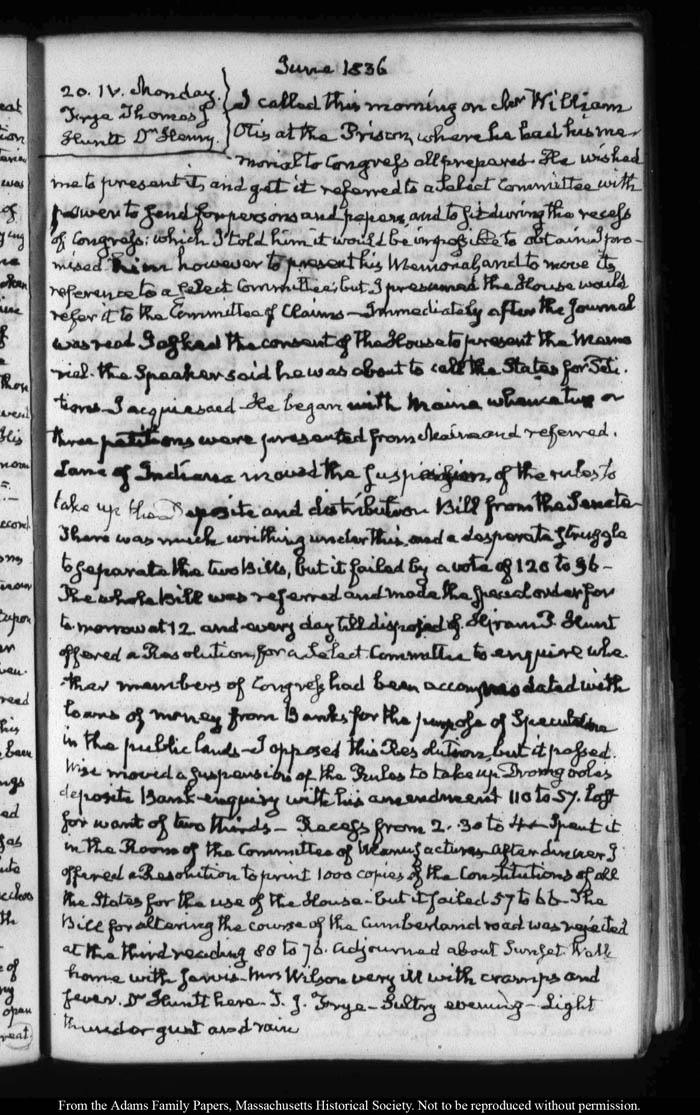 June 1836
20. IV. Monday.
Frye Thomas J.
Huntt Dr. Henry.
I called this morning on Mr William
Otis at the Prison, where he had his me-
morial to Congress all prepared. He wished
me to present it, and get it referred to a select Committee with
power to send for persons and papers, and to sit during the recess
of Congress: which I told him it would be impossible to obtain. I pro-
mised him however to present his Memorial and to move its
reference to a select Committee, but I presumed the House would
refer it to the Committee of Claims— Immediately after the Journal
was read I asked the consent of the House to present the Memo
rial. the Speaker said he was about to call the States for Peti-
tions— I acquiesced— He began with Maine whence two or
three petitions were presented from Maine and referred.
Lane of Indiana moved the suspension of the rules to
take up the Deposite and distribution Bill from the Senate—
There was much writhing under this, and a desperate struggle
to separate the two Bills, but it failed by a vote of 120 to 96—
The whole Bill was referred and made the special order for
to morrow at 12 and every day till disposed of. Hiram P. Hunt
offered a Resolution, for a Select Committee to enquire whe-
ther members of Congress had been accommodated with
loans of money from Banks for the purpose of Speculation
in the public lands— I opposed this Resolution, but it passed.
Wise moved a suspension of the Rules to take up Dromgooles
deposite Bank enquiry with his amendment 110 to 57. lost
for want of two thirds— Recess from 2.30 to 4— Spent it
in the Room of the Committee of Manufactures. After dinner I
offered a Resolution to print 1000 copies of the Constitutions of all
the States for the use of the House— but it failed 57 to 66— The
Bill for altering the course of the Cumberland road was rejected
at the third reading 88 to 76. Adjourned about Sunset. Walk
home with Jarvis. Mrs Wilson very ill with cramps and
fever. Dr Huntt here— T. J. Frye— Sultry evening— Light
thunder gust and rain
From the Adams Family Papers, Massachusetts Historical Society. Not to be reproduced without permission.